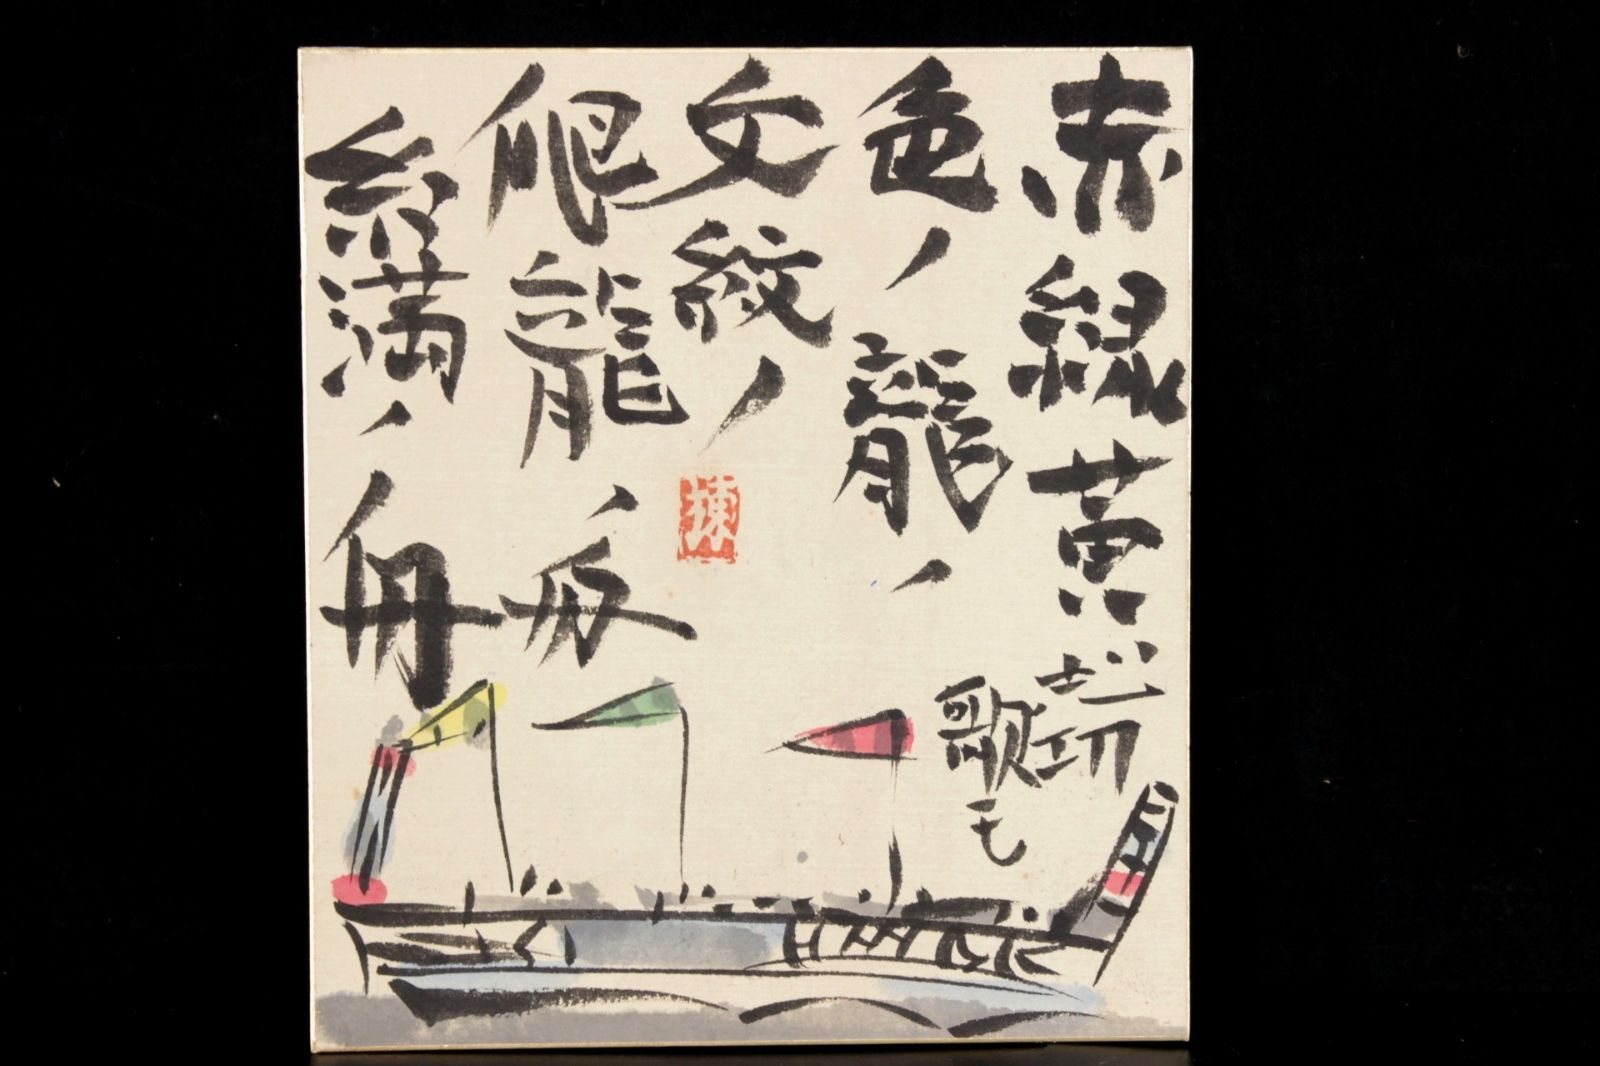 赤緑黄
色ノ龍ノ
文紋ノ
爬龍ノ舟
糸満ノ舟
志功
歌モ
棟